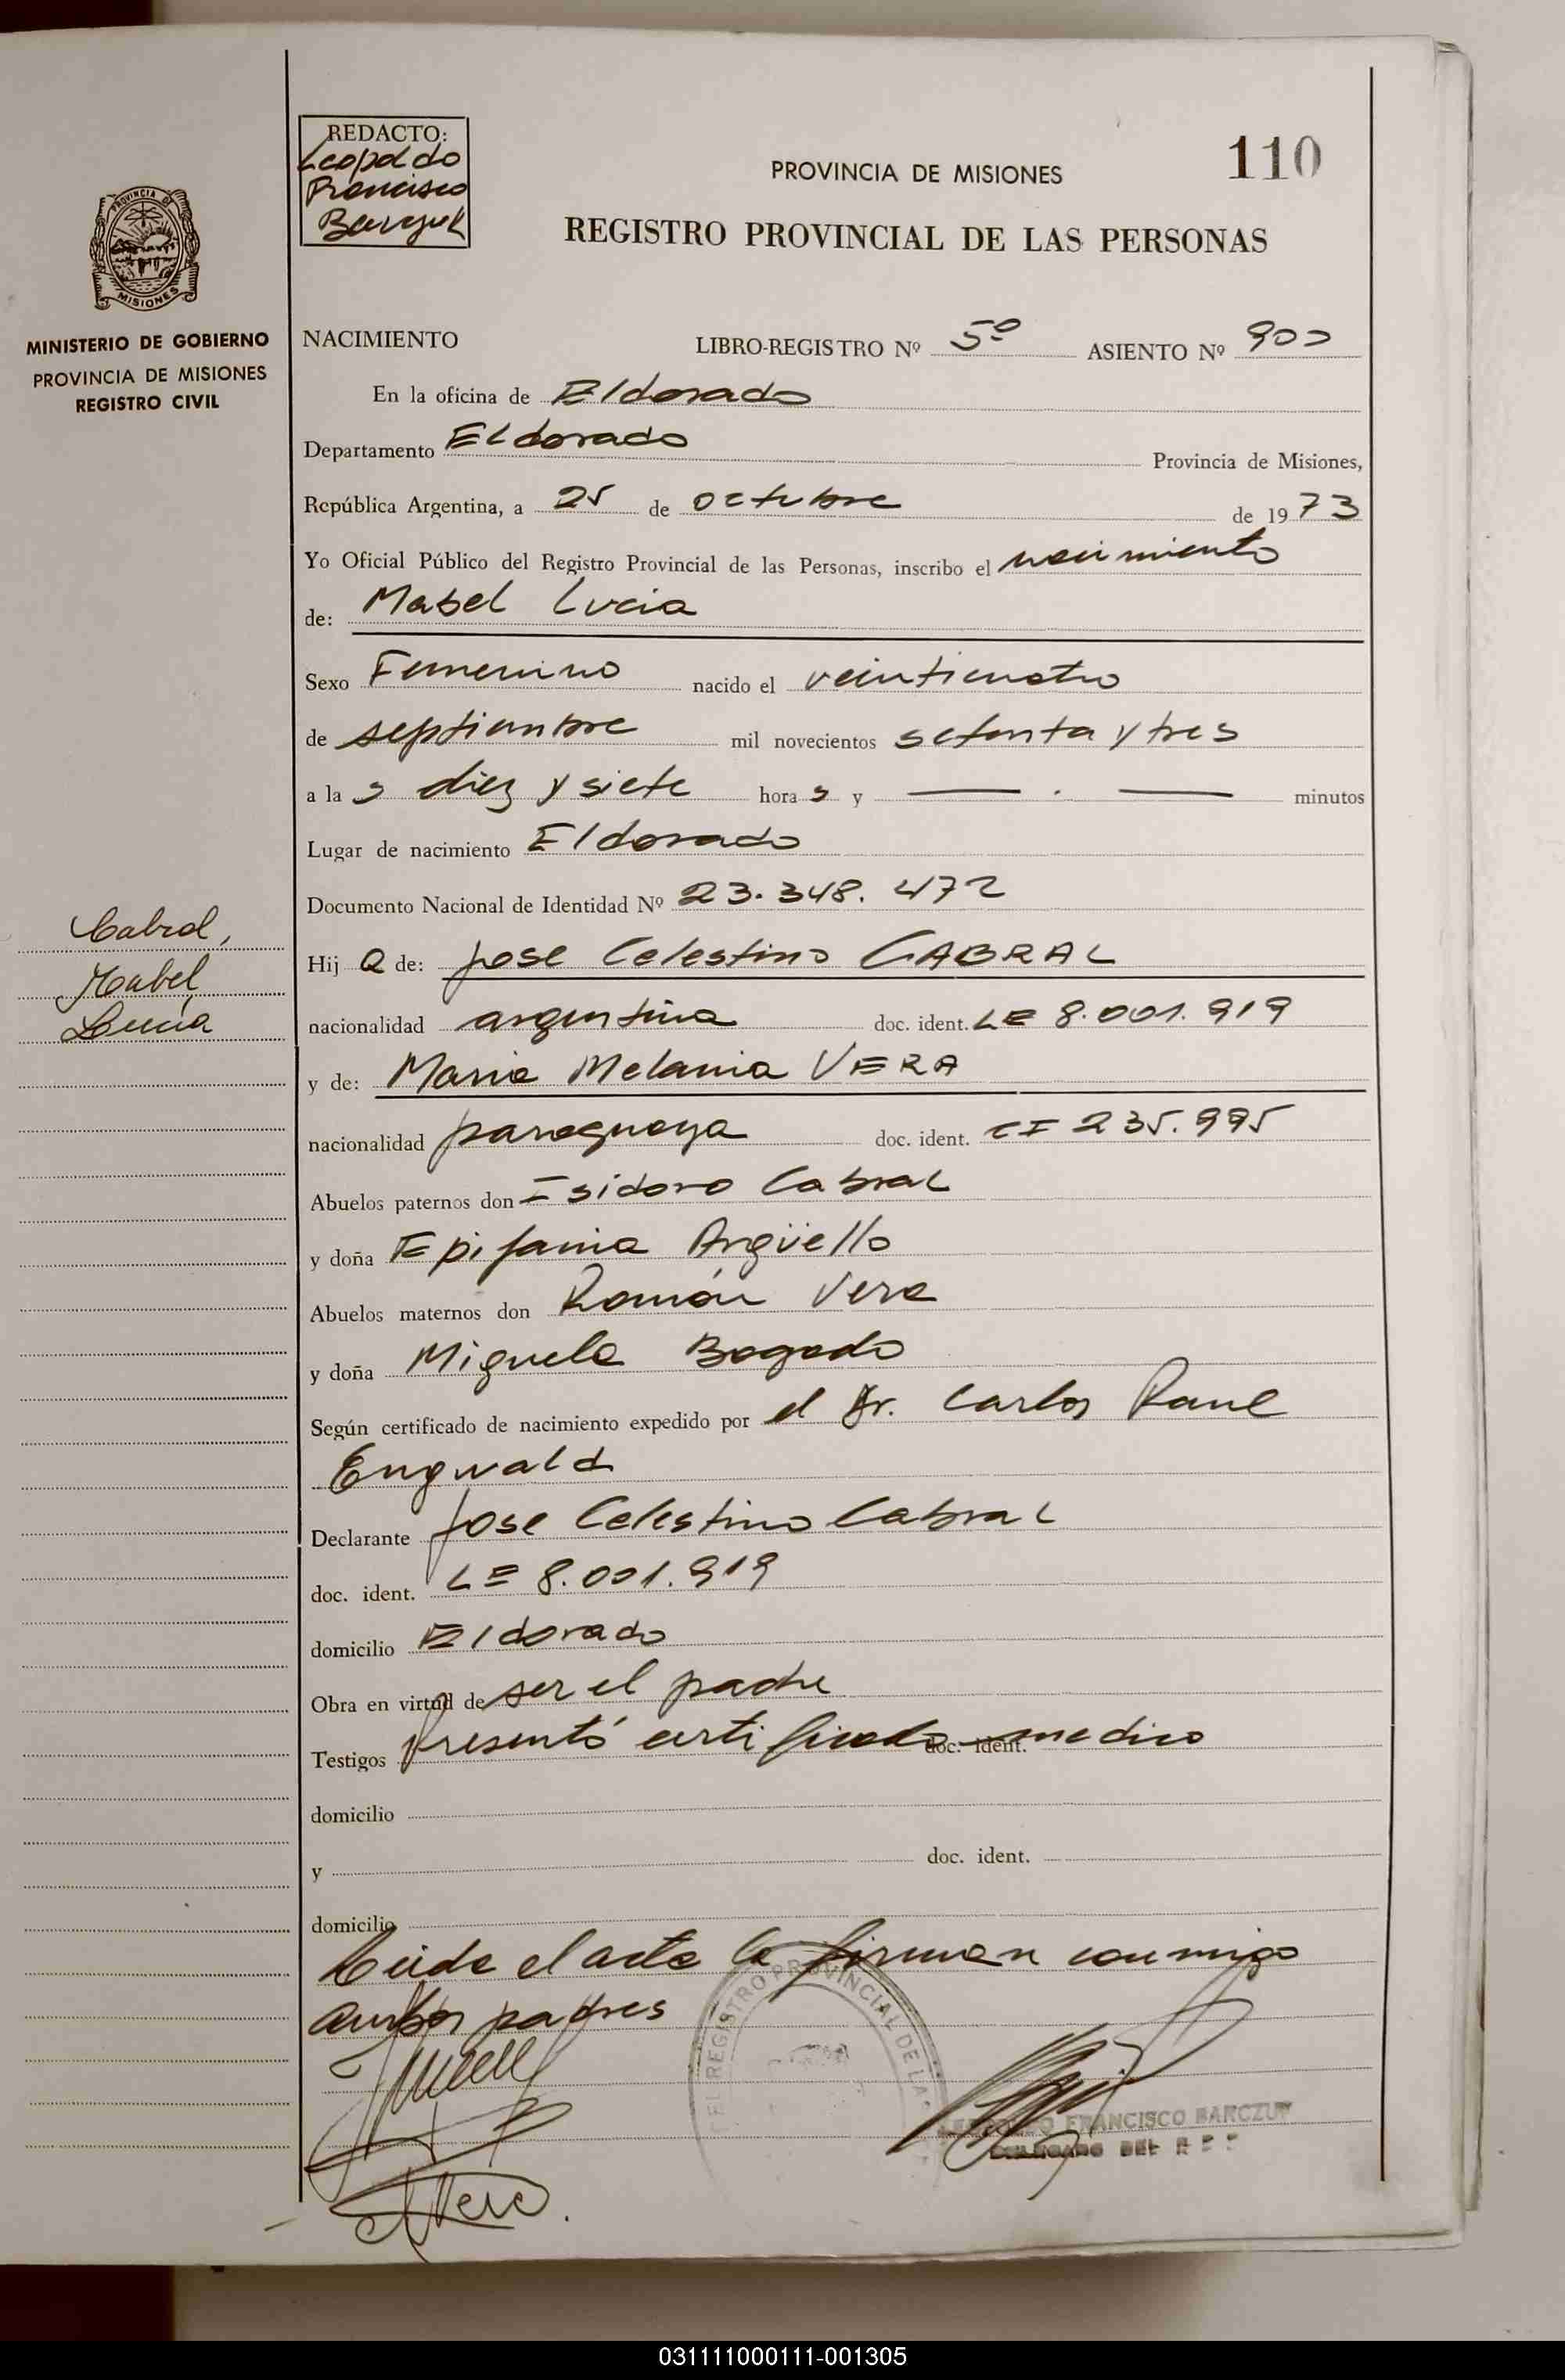 REDACTO:
Leopoldo
Francisco
Barczuk
110
PROVINCIA DE MISIONES
REGISTRO PROVINCIAL DE LAS PERSONAS
PROVINCIA DE
MISIONES
MINISTERIO DE GOBIERNO
PROVINCIA DE MISIONES
REGISTRO CIVIL
NACIMIENTO LIBRO-REGISTRO Nº 5º ASIENTO Nº 900
En la oficina de Eldorado
Departamento Eldorado Provincia de Misiones,
República Argentina, a 25 de octubre de 1973
Yo Oficial Público del Registro Provincial de las Personas, inscribo el nacimiento
de: Mabel Lucia
Sexo Femenino nacido el veinticuatro
de septiembre mil novecientos setenta y tres
a la s diez y siete hora s y —— . —— minutos
Lugar de nacimiento Eldorado
Documento Nacional de Identidad Nº 23.348.472
Cabral,
Mabel
Lucía
Hij a de: Jose Celestino CABRAL
nacionalidad argentina doc. ident. LE 8.001.919
y de: Maria Melania VERA
nacionalidad paraguaya doc. ident. CI 235.995
Abuelos paternos don Isidoro Cabral
y doña Epifania Argüello
Abuelos maternos don Román Vera
y doña Miguela Bogado
Según certificado de nacimiento expedido por el Dr. Carlos Raul
Engwald
Declarante Jose Celestino Cabral
doc. ident. LE 8.001.919
domicilio Eldorado
Obra en virtud de ser el padre
Testigos Presentó certificado medico doc. ident.
domicilio
y doc. ident.
domicilio
Leida el acta la firman conmigo
ambos padres
REGISTRO PROVINCIAL DE LA
FRANCISCO BARCZUK
DELEGADO DEL
031111000111-001305